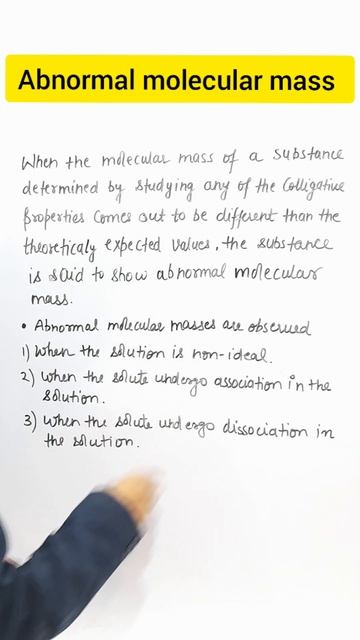 Abnormal molecular mass
When the molecular mass of a substance
determined by studying any of the Colligative
Properties Comes out to be different than the
theoreticaly expected values, the substance
is said to show abnormal molecular
mass.
• Abnormal molecular masses are observed
1) When the solution is non-ideal.
2) When the solute undergo association in the
solution.
3) When the solute undergo dissociation in
the solution.